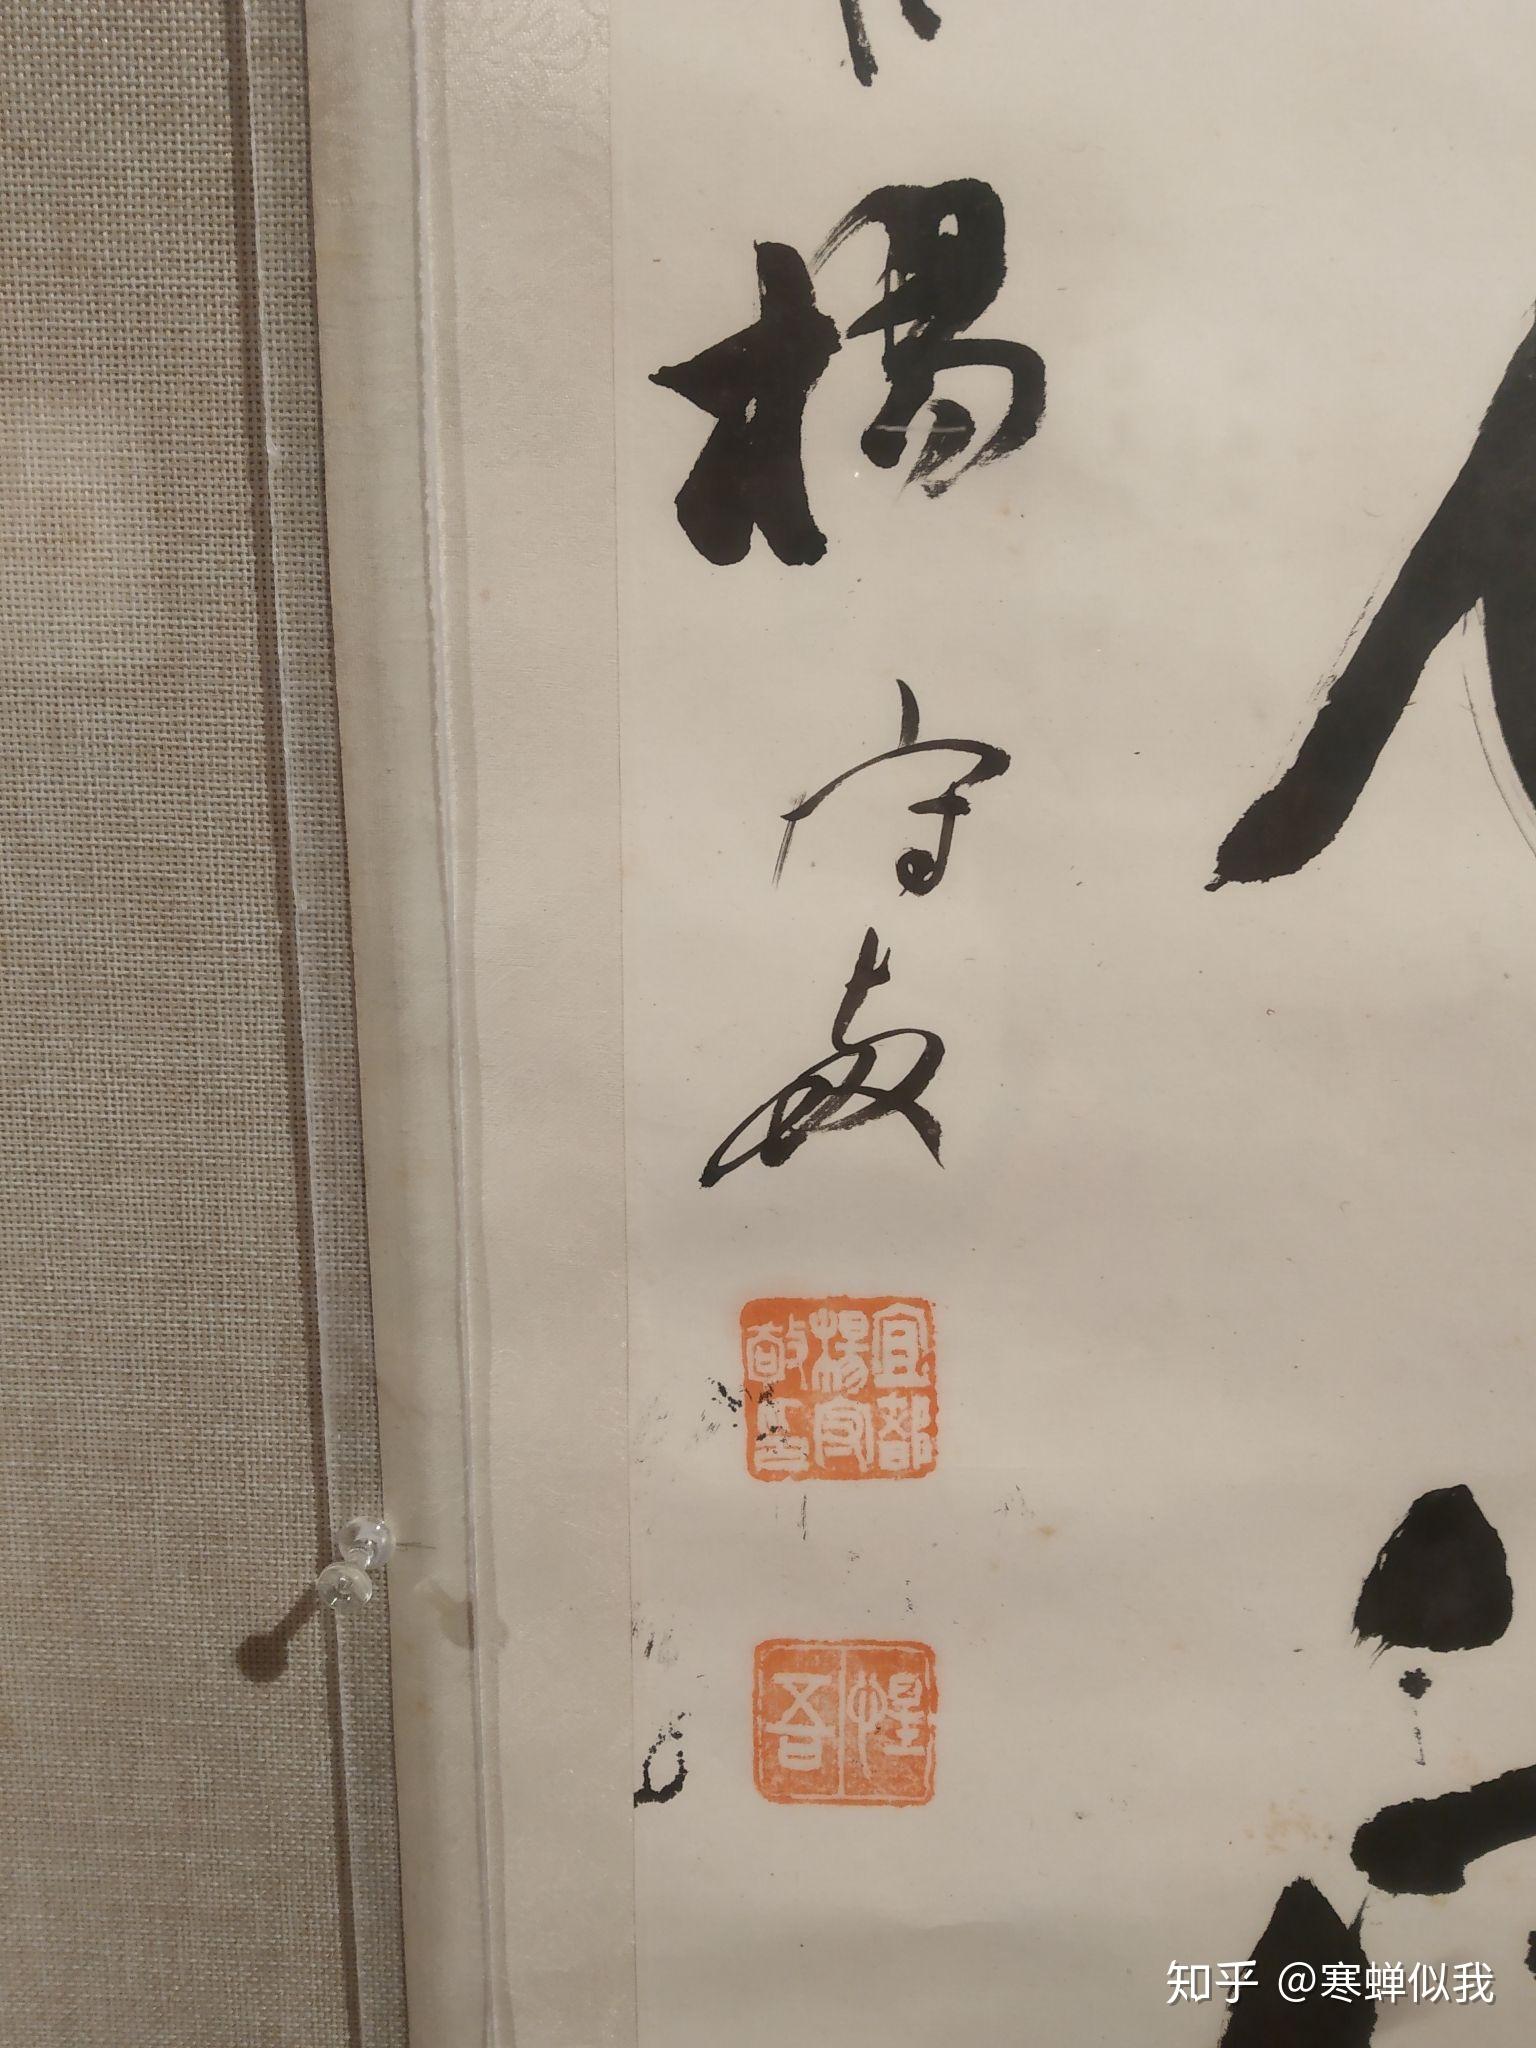 楊守敬
宜都
楊守
敬印
惺吾
知乎 @寒蝉似我